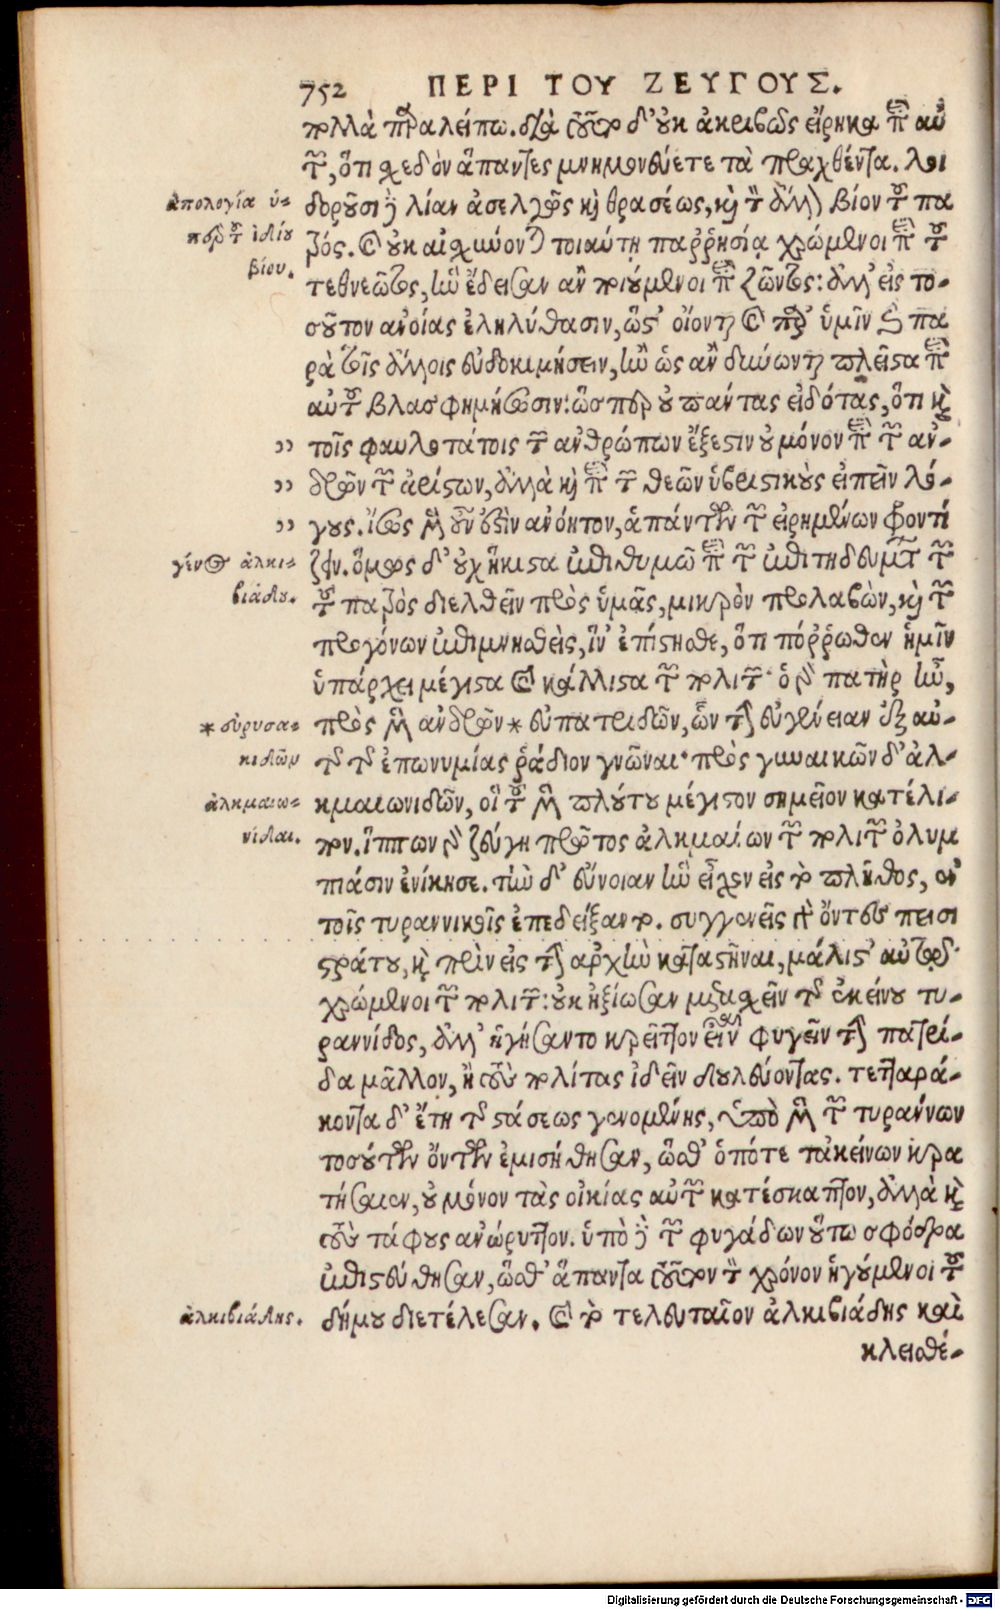 752 ΠΕΡΙ ΤΟΥ ΖΕΥΓΟΥΣ.
πολλὰ παραλείπω. διὰ τοῦτο δ' οὐκ ἀκριβῶς εἴρηκα περὶ αὐ
τῶν, ὅτι σχεδὸν ἅπαντες μνημονεύετε τὰ πραχθέντα. λοι
ἀπολογία ὑ-
δοροῦσι δὲ λίαν ἀσελγῶς καὶ θρασέως, καὶ τὸν ἄλλον βίον τοῦ πα
πὲρ τοῦ ἰδίου
τρός. καὶ οὐκ αἰσχύονται τοιαύτῃ παῤῥησίᾳ χρώμενοι περὶ τοῦ
βίου.
τεθνεῶτος, ἣν ἔδεισαν ἂν ποιούμενοι περὶ ζῶντος: ἀλλ' εἰς το-
σοῦτον ἀνοίας ἐληλύθασιν, ὥστ' οἴονται καὶ παρ' ὑμῖν καὶ πα
ρὰ τοῖς ἄλλοις εὐδοκιμήσειν, ἢν ὡς ἂν δύνωνται πλεῖστα περὶ
αὐτοῦ βλασφημήσωσιν: ὥσπερ οὐ πάντας εἰδότας, ὅτι καὶ
,, τοῖς φαυλοτάτοις τῶν ἀνθρώπων ἔξεστιν οὐ μόνον περὶ τῶν ἀν-
,, δρῶν τῶν ἀρίστων, ἀλλὰ καὶ περὶ τῶν θεῶν ὑβριστικοὺς εἰπεῖν λό-
,, γους. ἴσως μὲν οὖν ἐστὶν ἀνόητον, ἁπάντων τῶν εἰρημένων φροντί
γένος ἀλκι-
ζειν. ὅμως δ' οὐχ ἥκιστα ἐπιθυμῶ περὶ τῶν ἐπιτηδευμάτων τῶν
βιάδου.
τοῦ πατρὸς διελθεῖν πρὸς ὑμᾶς, μικρὸν προλαβὼν, καὶ τῶν
προγόνων ἐπιμνησθεὶς, ἵν' ἐπίστησθε, ὅτι πόῤῥωθεν ἡμῖν
ὑπάρχει μέγιστα καὶ κάλλιστα τῶν πολιτῶν. ὁ γὰρ πατὴρ ἦν,
* εὐρυσα-
πρὸς μὲν ἀνδρῶν * εὐπατριδῶν, ὧν τὴν εὐγένειαν ἐξ αὐ-
κιδῶν
τῆς τῆς ἐπωνυμίας ῥάδιον γνῶναι. πρὸς γυναικῶν δ' ἀλ-
ἀλκμαιω-
κμαιωνιδῶν, οἳ τοῦ μὲν πλούτου μέγιστον σημεῖον κατέλι-
νίδαι.
πον. ἵππων γὰρ ζεύγη πρῶτος ἀλκμαίων τῶν πολιτῶν ὀλυμ
πιάσιν ἐνίκησε. τὴν δ' εὔνοιαν ἣν εἶχον εἰς τὸ πλῆθος, ἐν
τοῖς τυραννικοῖς ἐπεδείξαντο. συγγενεῖς γὰρ ὄντες πεισι
στράτου, καὶ πρὶν εἰς τὴν ἀρχὴν καταστῆναι, μάλιστ' αὐτῷ
χρώμενοι τῶν πολιτῶν: οὐκ ἠξίωσαν μετασχεῖν τῆς ἐκείνου τυ-
ραννίδος, ἀλλ' ἡγήσαντο κρεῖττον εἶναι φυγεῖν τὴν πατρί-
δα μᾶλλον, ἢ τοὺς πολίτας ἰδεῖν δουλεύοντας. τετταρά-
κοντα δ' ἔτη τῆς στάσεως γενομένης, ὑπὸ μὲν τῶν τυράννων
τοσούτων ὄντων ἐμισήθησαν, ὥσθ' ὁπότε τἀκείνων κρα
τήσαιεν, οὐ μόνον τὰς οἰκίας αὐτῶν κατέσκαπτον, ἀλλὰ καὶ
τοὺς τάφους ἀνώρυττον. ὑπὸ δὲ τῶν φυγάδων οὕτω σφόδρα
ἐπιστεύθησαν, ὥσθ' ἅπαντα τοῦτον τὸν χρόνον ἡγούμενοι τοῦ
ἀλκιβιάδης.
δήμου διετέλεσαν. καὶ τὸ τελευταῖον ἀλκιβιάδης καὶ
κλεισθέ-
Digitalisierung gefördert durch die Deutsche Forschungsgemeinschaft - DFG